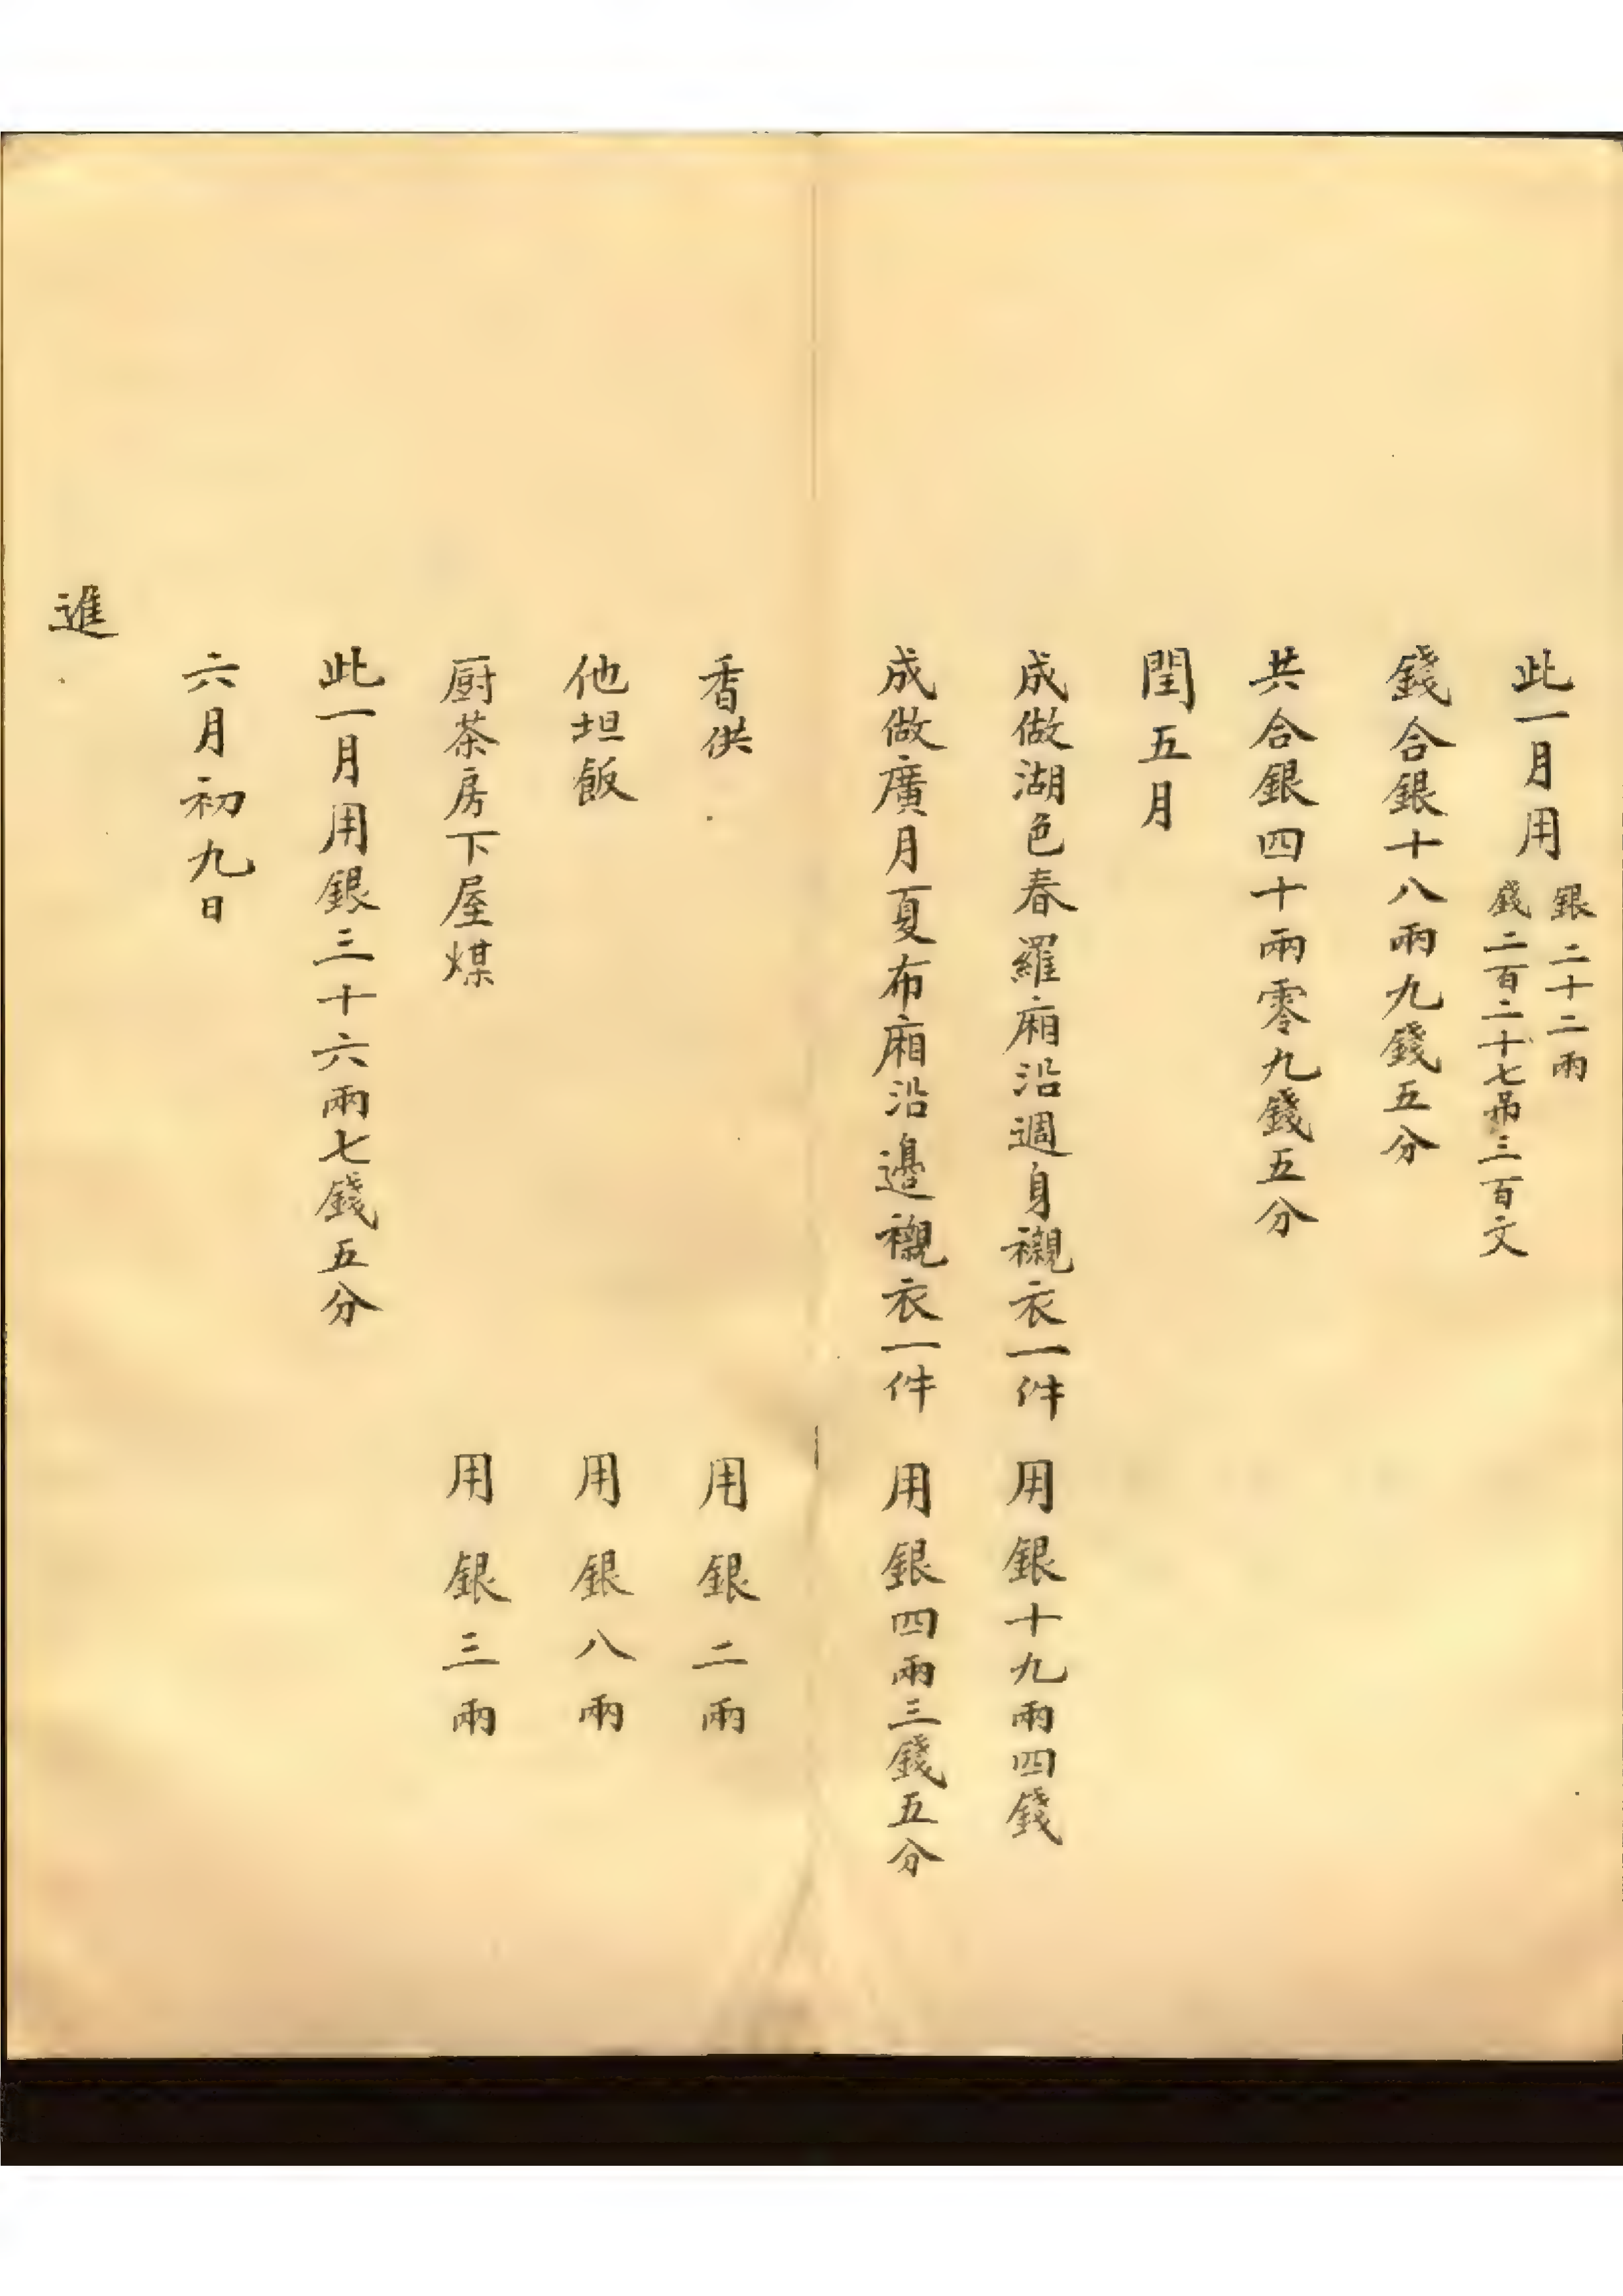 此一月用銀二十二兩
錢二百二十七吊三百文
錢合銀十八兩九錢五分
共合銀四十兩零九錢五分
閏五月
成做湖色春羅廂沿週身襯衣一件 用銀十九兩四錢
成做廣月夏布廂沿邊襯衣一件 用銀四兩三錢五分
香供 用銀二兩
他坦飯 用銀八兩
厨茶房下屋煤 用銀三兩
此一月用銀三十六兩七錢五分
六月初九日
進